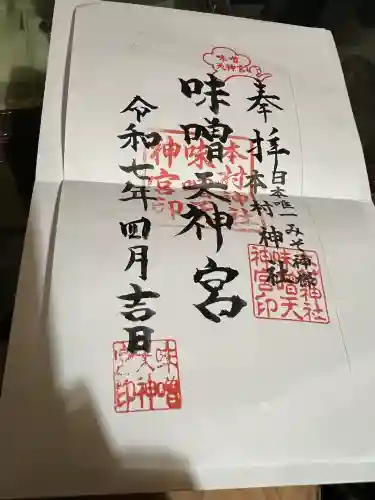 味噌
天神宮
奉拝
日本唯一みそ神様
本村神社
味噌天神宮
令和七年四月吉日
本村神社
味噌天
神宮印
味噌
天神
宮印